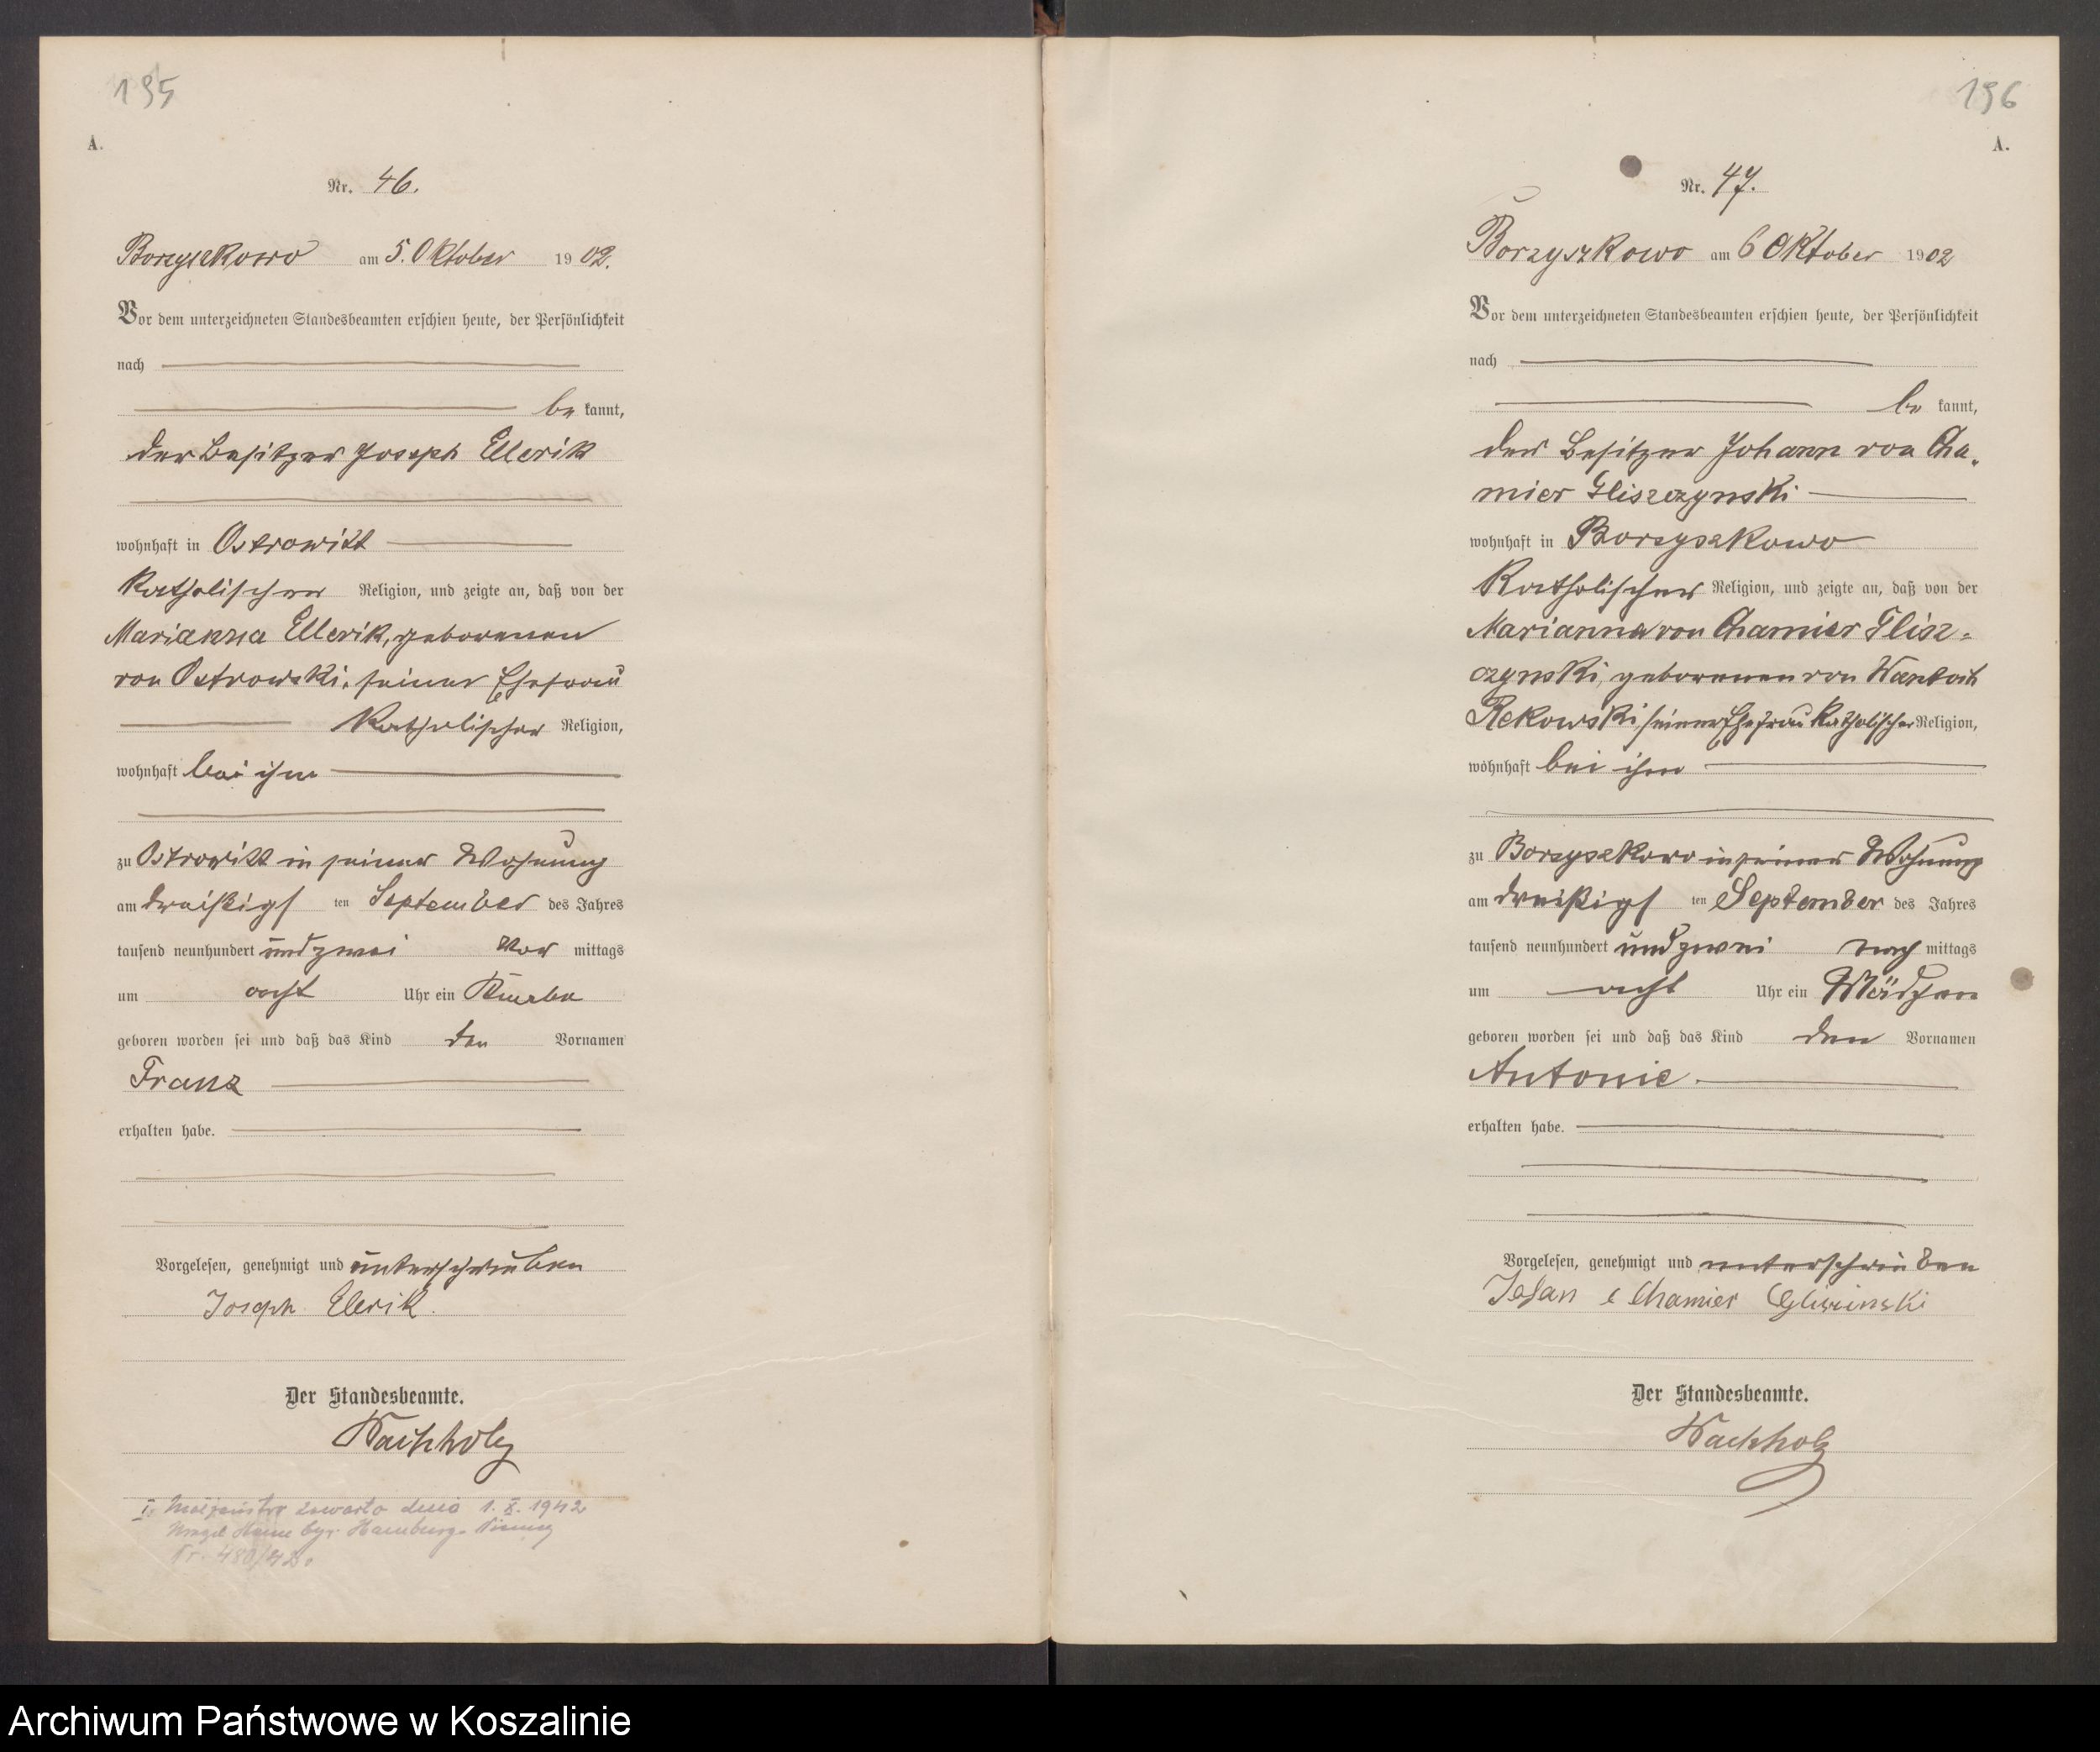 195
A.
Nr. 46.
Borzyszkowo am 5. Oktober 1902.
Vor dem unterzeichneten Standesbeamten erschien heute, der Persönlichkeit
nach
be kannt,
der Besitzer Joseph Ellerik
wohnhaft in Ostrowitt
katholischer Religion, und zeigte an, daß von der
Marianna Ellerik, geborenen
von Ostrowski, seiner Ehefrau
katholischer Religion,
wohnhaft bei ihm
zu Ostrowitt in seiner Wohnung
am dreißigs ten September des Jahres
tausend neunhundert und zwei Vor mittags
um acht Uhr ein Knabe
geboren worden sei und daß das Kind den Vornamen
Franz
erhalten habe.
Vorgelesen, genehmigt und unterschrieben
Joseph Elerik.
Der Standesbeamte.
Wachholz
I. Małżeństwo zawarto dnia 1. X. 1942
Hamburg
Nr. 480/42.
196
A.
Nr. 47.
Borzyszkowo am 6 Oktober 1902
Vor dem unterzeichneten Standesbeamten erschien heute, der Persönlichkeit
nach
be kannt,
der Besitzer Johann von Cha-
mier Gliszczynski
wohnhaft in Borzyszkowo
katholischer Religion, und zeigte an, daß von der
Marianna von Chamier Glisz-
czynski, geborenen von Wantoch
Rekowski, seiner Ehefrau katholischer Religion,
wohnhaft bei ihm
zu Borzyszkowo in seiner Wohnung
am dreißigs ten September des Jahres
tausend neunhundert und zwei nach mittags
um acht Uhr ein Mädchen
geboren worden sei und daß das Kind den Vornamen
Antonie.
erhalten habe.
Vorgelesen, genehmigt und unterschrieben
Johan Chamier
Der Standesbeamte.
Wachholz
Archiwum Państwowe w Koszalinie